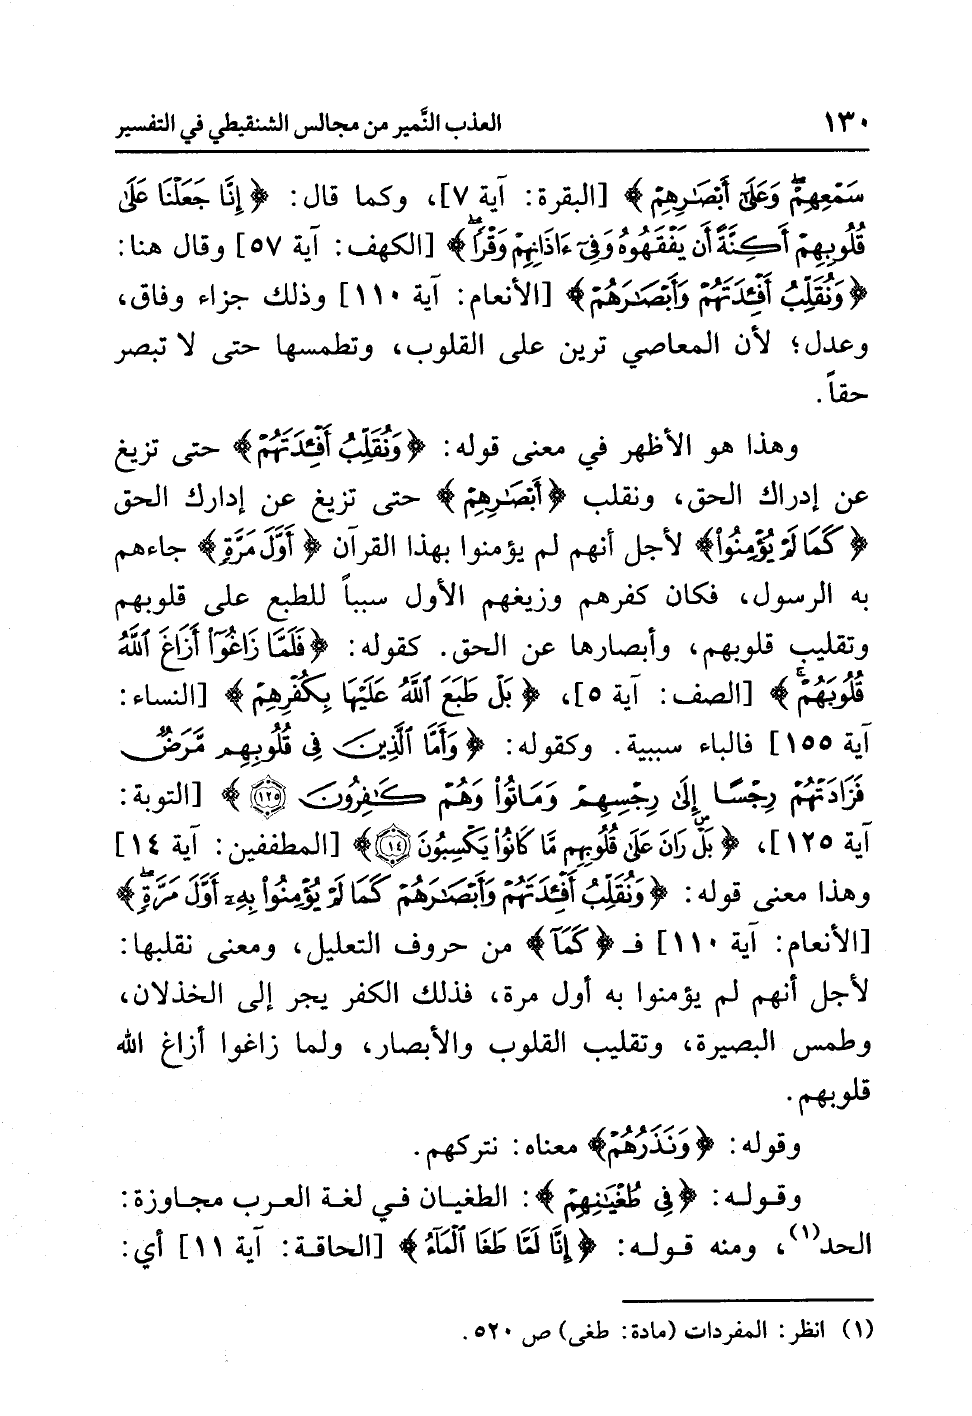 ١٣٠ العذب النَّمير من مجالس الشنقيطي في التفسير
سَمْعِهِمْ ۖ وَعَلَىٰٓ أَبْصَٰرِهِمْ ﴾ [البقرة: آية ٧]، وكما قال: ﴿ إِنَّا جَعَلْنَا عَلَىٰ
قُلُوبِهِمْ أَكِنَّةً أَن يَفْقَهُوهُ وَفِىٓ ءَاذَانِهِمْ وَقْرًا ۖ ﴾ [الكهف: آية ٥٧] وقال هنا:
﴿ وَنُقَلِّبُ أَفْـِٔدَتَهُمْ وَأَبْصَٰرَهُمْ ﴾ [الأنعام: آية ١١٠] وذلك جزاء وفاق،
وعدل؛ لأن المعاصي ترين على القلوب، وتطمسها حتى لا تبصر
حقاً.
وهذا هو الأظهر في معنى قوله: ﴿ وَنُقَلِّبُ أَفْـِٔدَتَهُمْ ﴾ حتى تزيغ
عن إدراك الحق، ونقلب ﴿ أَبْصَٰرِهِمْ ﴾ حتى تزيغ عن إدارك الحق
﴿ كَمَا لَمْ يُؤْمِنُوا۟ ﴾ لأجل أنهم لم يؤمنوا بهذا القرآن ﴿ أَوَّلَ مَرَّةٍ ﴾ جاءهم
به الرسول، فكان كفرهم وزيغهم الأول سبباً للطبع على قلوبهم
وتقليب قلوبهم، وأبصارها عن الحق. كقوله: ﴿ فَلَمَّا زَاغُوٓا۟ أَزَاغَ ٱللَّهُ
قُلُوبَهُمْ ۚ ﴾ [الصف: آية ٥]، ﴿ بَلْ طَبَعَ ٱللَّهُ عَلَيْهَا بِكُفْرِهِمْ ﴾ [النساء:
آية ١٥٥] فالباء سببية. وكقوله: ﴿ وَأَمَّا ٱلَّذِينَ فِى قُلُوبِهِم مَّرَضٌ
فَزَادَتْهُمْ رِجْسًا إِلَىٰ رِجْسِهِمْ وَمَاتُوا۟ وَهُمْ كَٰفِرُونَ ١٢٥ ﴾ [التوبة:
آية ١٢٥]، ﴿ بَلْ ۜ رَانَ عَلَىٰ قُلُوبِهِم مَّا كَانُوا۟ يَكْسِبُونَ ١٤ ﴾ [المطففين: آية ١٤]
وهذا معنى قوله: ﴿ وَنُقَلِّبُ أَفْـِٔدَتَهُمْ وَأَبْصَٰرَهُمْ كَمَا لَمْ يُؤْمِنُوا۟ بِهِۦٓ أَوَّلَ مَرَّةٍ ۖ ﴾
[الأنعام: آية ١١٠] فـ ﴿ كَمَآ ﴾ من حروف التعليل، ومعنى نقلبها:
لأجل أنهم لم يؤمنوا به أول مرة، فذلك الكفر يجر إلى الخذلان،
وطمس البصيرة، وتقليب القلوب والأبصار، ولما زاغوا أزاغ الله
قلوبهم.
وقوله: ﴿ وَنَذَرُهُمْ ﴾ معناه: نتركهم.
وقوله: ﴿ فِى طُغْيَٰنِهِمْ ﴾: الطغيان في لغة العرب مجاوزة:
الحد(١)، ومنه قوله: ﴿ إِنَّا لَمَّا طَغَا ٱلْمَآءُ ﴾ [الحاقة: آية ١١] أي:
(١) انظر: المفردات (مادة: طغى) ص ٥٢٠.